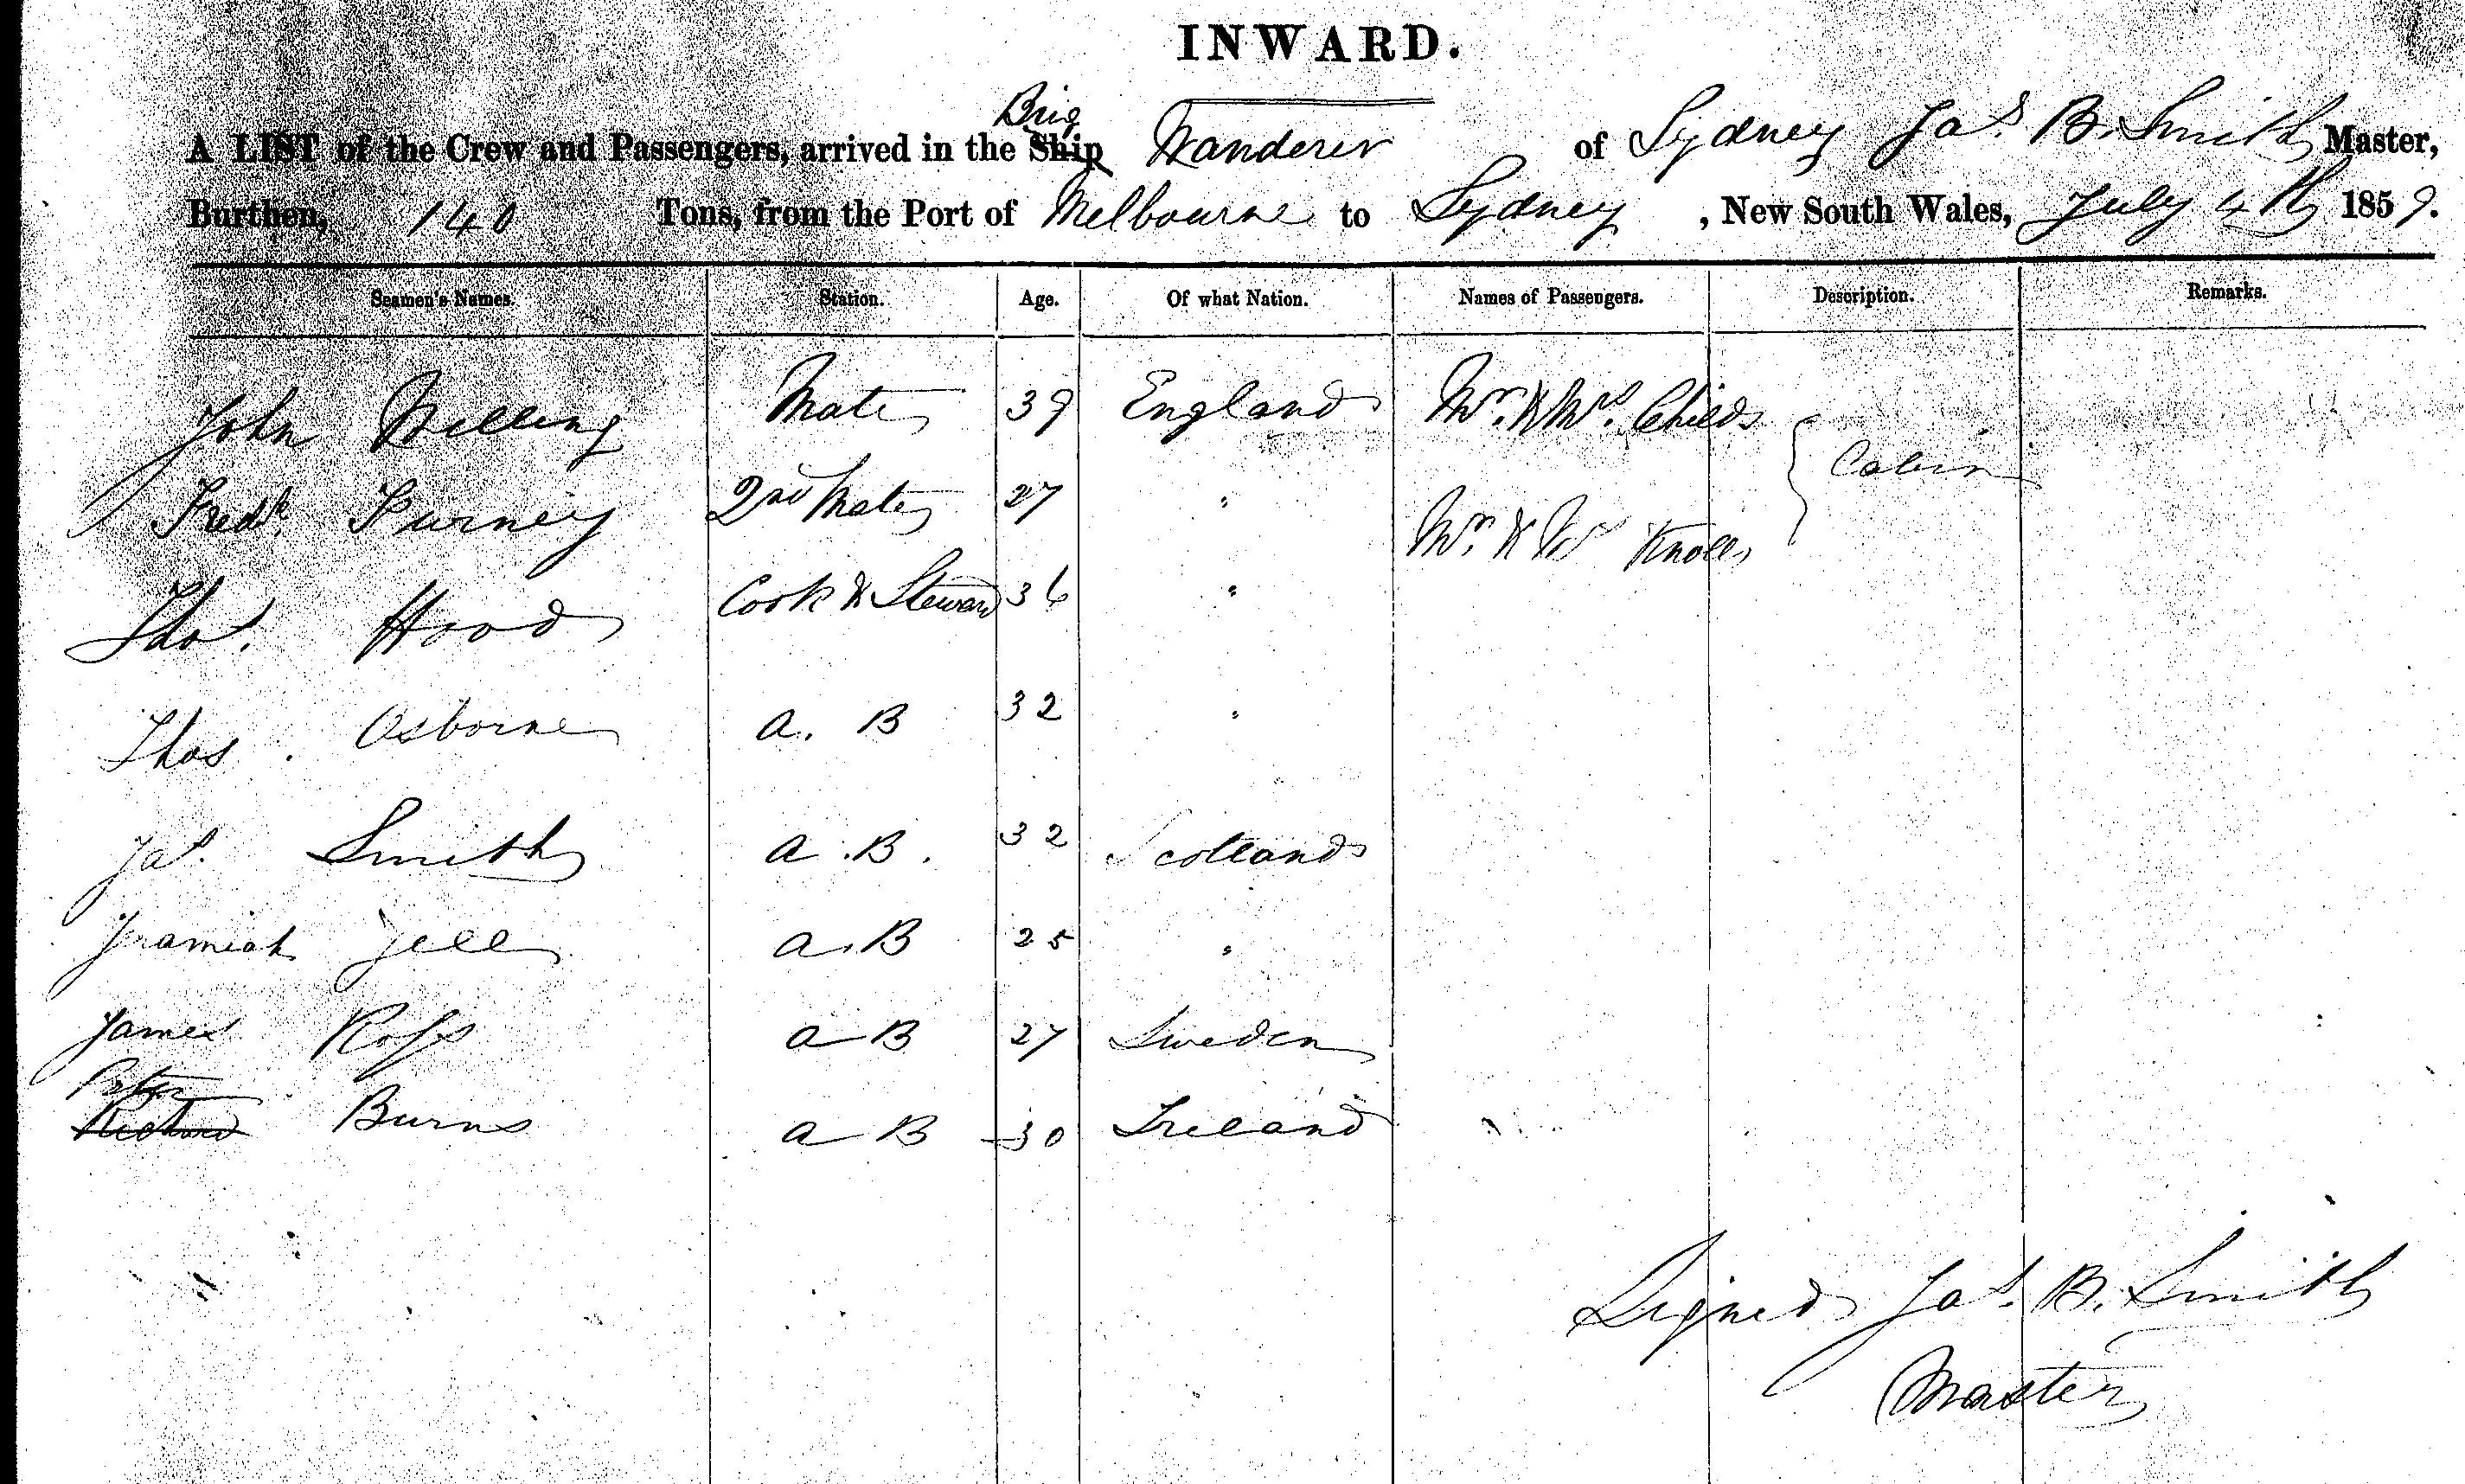 INWARD.
Brig
A LIST of the Crew and Passengers, arrived in the Ship Wanderer of Sydney Jas. B. Smith Master,
Burthen, 140 Tons, from the Port of Melbourne to Sydney, New South Wales, July 4th 1859.
Seamen's Names. Station. Age. Of what Nation. Names of Passengers. Description. Remarks.
John Mate 39 England Mr. & Mrs. Childs
Cabin
Fredk. Furney 2nd Mate 27 "
Mr. & Mrs
Thos. Hood Cook & Steward 36 "
Thos. Osborne A. B 32 "
Jas. Smith A. B. 32 Scotland
Jramiah Jell A. B 25 "
James Ross A B 27 Sweden
Peter
Richard Burns A B 30 Ireland
Signed Jas. B. Smith
Master